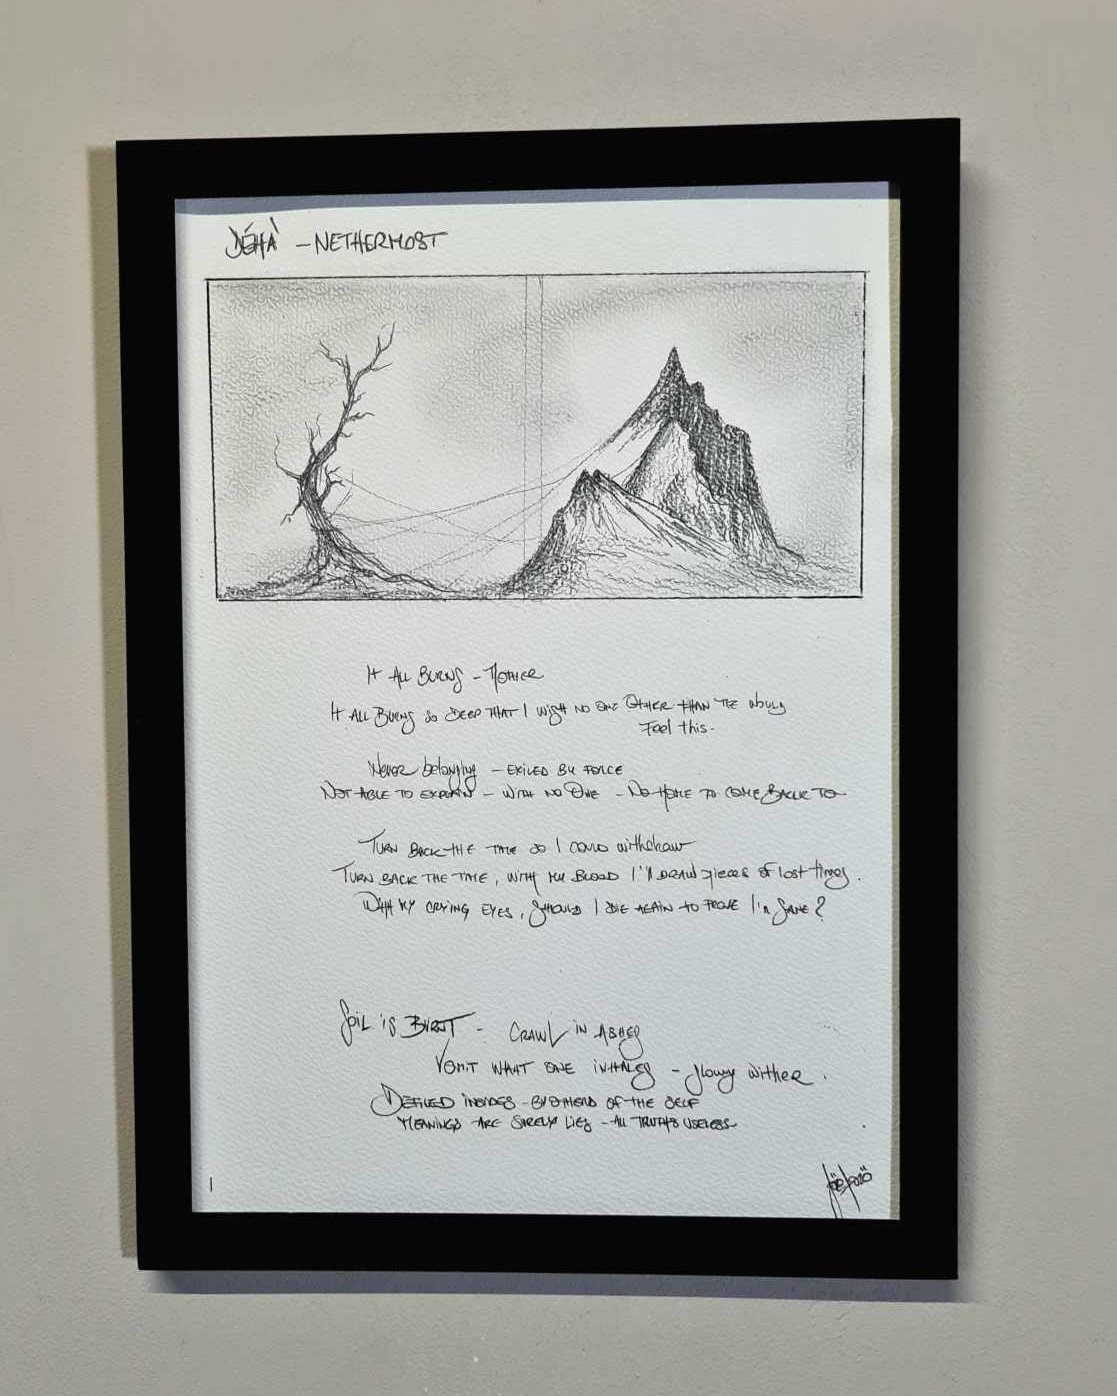 DÉHÀ – NETHERMOST
It All Burns – Mother
It All Burns so deep that I wish no one other than me would
Feel this.
Never belonging – exiled by force
Not able to explain – with no one – No home to come back to
Turn back the time so I could withdraw
Turn back the time, with my blood I'll draw pieces of lost times.
With my crying eyes, should I die again to prove I'm sane?
Soil is Burnt – Crawl in Ashes
Vomit what one inhales – slowly wither.
Defiled insides – of the self
Meanings are surely lies – all truths useless
1